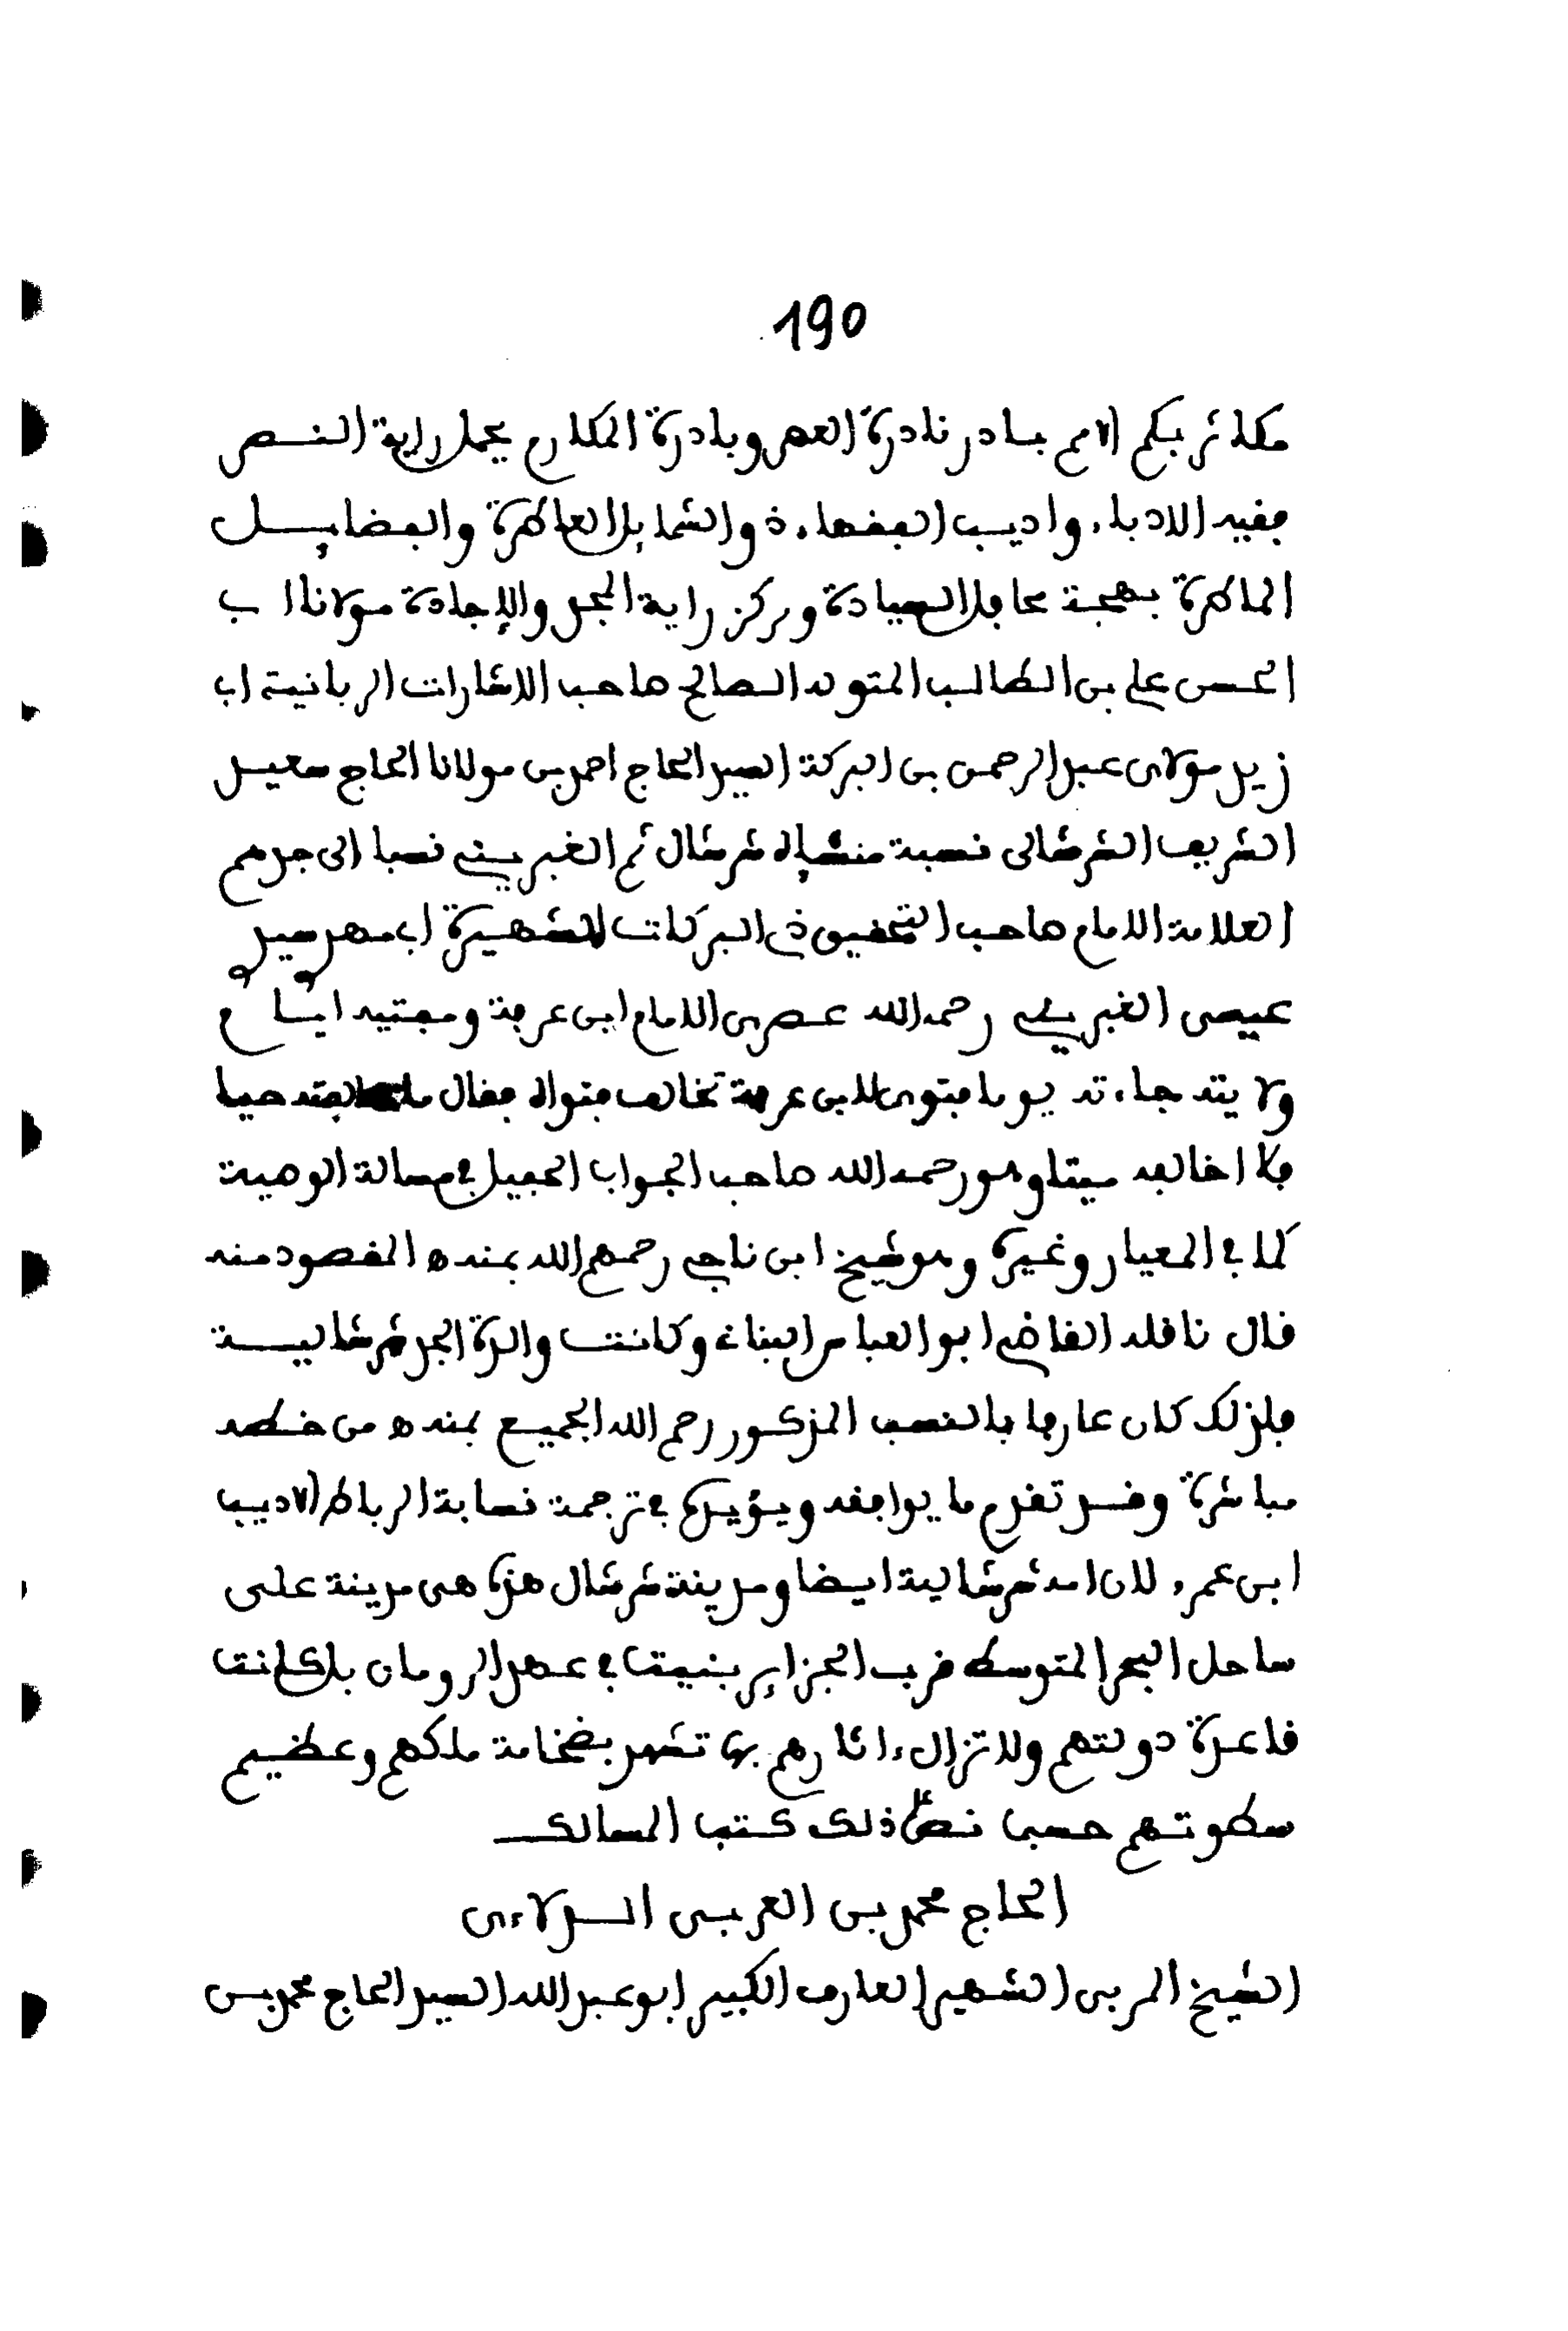 190
مكاثر بكم الامم بادر نادرة العصر وبادرة المكارم يحمل راية النصر
فقيه الادباء، واديب الفقهاء، ذو الشمايل العاطرة والفضايل
الماطرة بهجة محافل السيادة ومركز راية المجد والإجادة مولانا اب
الحسن علي بن الطالب المتو له الصالح صاحب الاشارات الربانية اب
زيد مولاي عبد الرحمن بن البركة السيد الحاج احمد بن مولانا الحاج سعيد
الشريف الشرشالى نسبة منشإه شرشال ثم الغبريني نسبا الى جدهم
العلامة الامام صاحب التحقيق ذي البركات الشهيرة اب مهدي سيدي
عيسى الغبريني رحمه الله عصري الامام ابن عرفة ومفتيه ايـام
ولايته جاءته يوما فتوى لابن عرفة تخالف فتواه فقال ما خالفته حيا
فلا اخالفه ميتا وهو رحمه الله صاحب الجواب الجميل في مسالة الوصية
كما في المعيار وغيره وهو شيخ ابن ناجي رحمهم الله بمنه ه المقصود منه
قال ناقله القاضي ابو العباس البناء وكانت والدة الجد شرشاليـة
فلذلك كان عارفا بالنسب المذكور رحم الله الجميع بمنه ه من خطه
مباشرة وقـد تقدم ما يوافقه ويؤيده في ترجمة نسابة الرباط الاديب
ابن عمرو لان امه شرشالية ايضا ومدينة شرشال هذه هى مدينة على
ساحل البحر المتوسط قرب الجزاير بنيت في عهد الرومان بل كانت
قاعدة دولتهم ولا تزال ءاثارهم بها تشهد بضخامة ملكهم وعظيم
سطوتهم حسبما نص على ذلك كتب المسالك
الحاج محمد بن العربى الـدلاءى
الشيخ المربى الشهير العارف الكبير ابو عبد الله السيد الحاج محمد بن